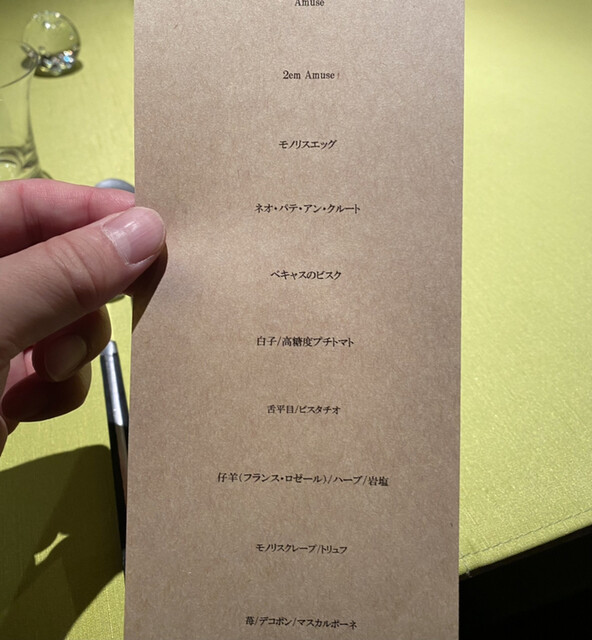 Amuse
2em Amuse
モノリスエッグ
ネオ・パテ・アン・クルート
ベキャスのビスク
白子/高糖度プチトマト
舌平目/ピスタチオ
仔羊(フランス・ロゼール)/ハーブ/岩塩
モノリスクレープ/トリュフ
苺/デコポン/マスカルポーネ